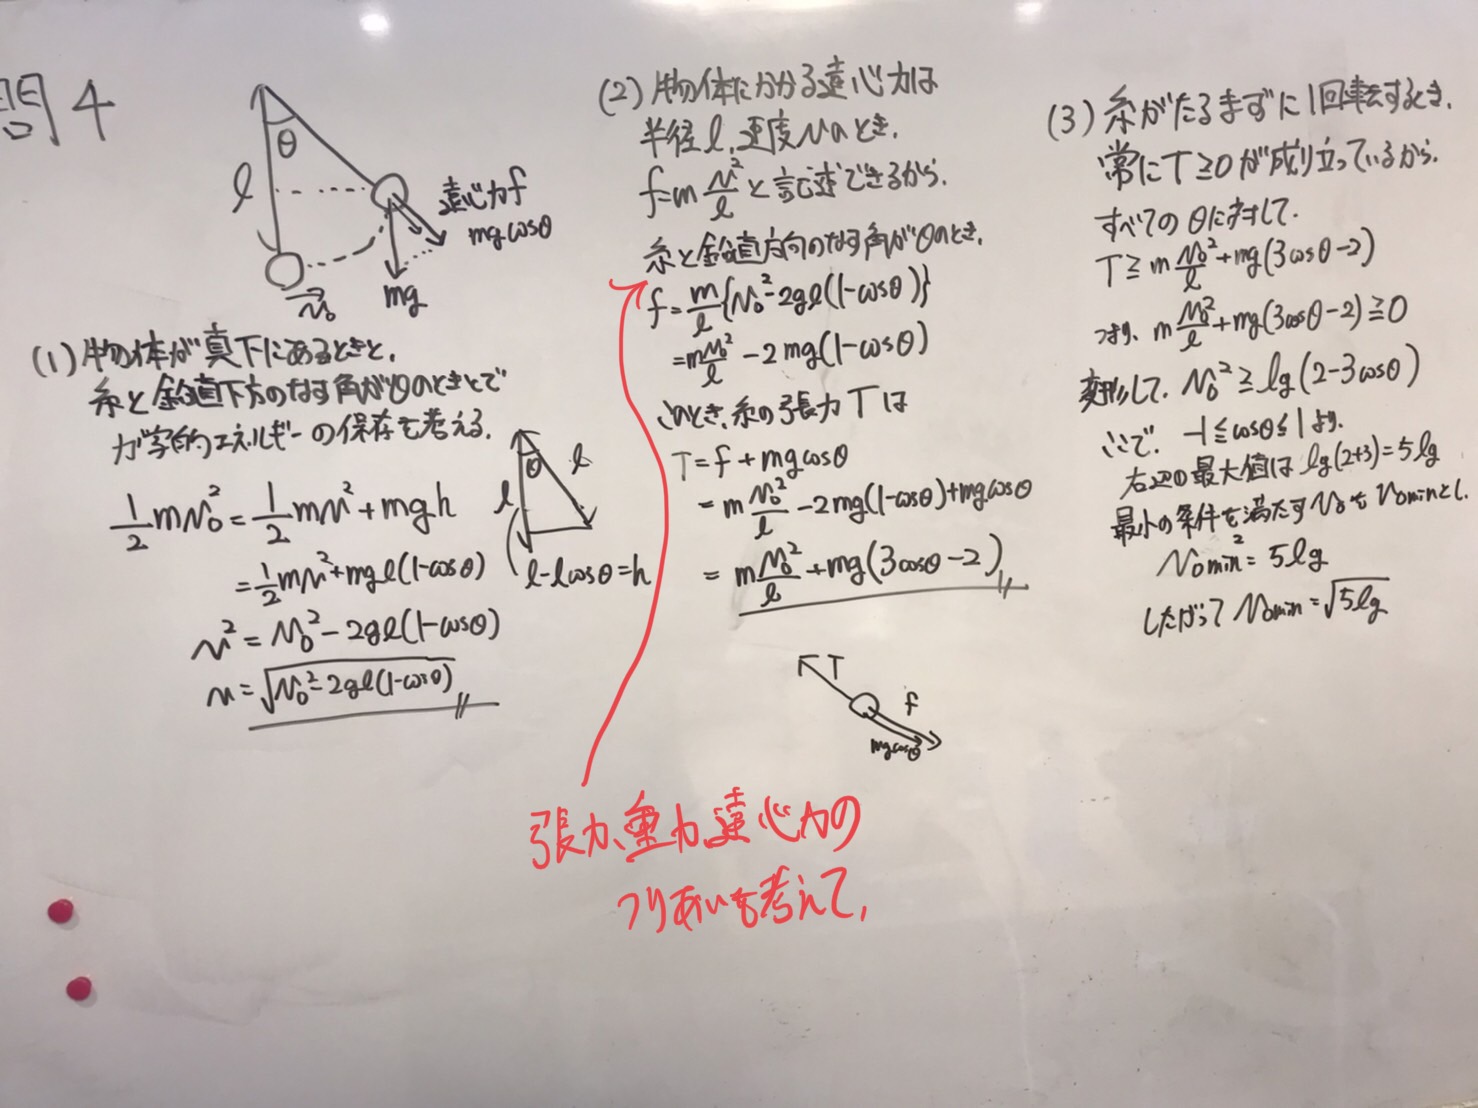 問4
θ
l
遠心力f
mgcosθ
mg
v₀
(1) 物体が真下にあるときと、
糸と鉛直下方のなす角がθのときとで
力学的エネルギーの保存を考える。
θ
l
l
l-lcosθ=h
1/2mv₀²=1/2mv²+mgh
=1/2mv²+mgl(1-cosθ)
v²=v₀²-2gl(1-cosθ)
v=√v₀²-2gl(1-cosθ)
(2) 物体にかかる遠心力は
半径l、速度vのとき、
f=m v²/l と記述できるから、
糸と鉛直方向のなす角がθのとき、
f=m/l{v₀²-2gl(1-cosθ)}
=m v₀²/l-2mg(1-cosθ)
このとき、糸の張力Tは
T=f+mgcosθ
=m v₀²/l-2mg(1-cosθ)+mgcosθ
=m v₀²/l+mg(3cosθ-2)
T
f
mgcosθ
張力、重力、遠心力の
つりあいを考えて、
(3) 糸がたるまずに1回転するとき、
常にT≧0が成り立っているから、
すべてのθに対して、
T≧m v₀²/l+mg(3cosθ-2)
つまり、m v₀²/l+mg(3cosθ-2)≧0
変形して、v₀²≧lg(2-3cosθ)
ここで、-1≦cosθ≦1より、
右辺の最大値はlg(2+3)=5lg
最小の条件を満たすv₀をv₀minとし、
v₀min²=5lg
したがってv₀min=√5lg